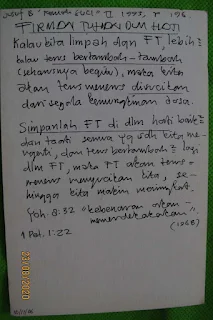 Jusuf B "Hidup SUCI" II 1993, p 196.
FIRMAN TUHAN DLM HATI
Kalau kita limpah dgn FT, lebih²
kalau terus bertambah-tambah
(seharusnya begitu), maka kita
akan terus menerus disucikan
dari segala kemungkinan dosa.
Simpanlah FT di dlm hati baik²
dan taati semua yg sdh kita me-
ngerti, dan terus bertambah² lagi
dlm FT, maka FT akan terus-
menerus menyucikan kita, se-
hingga kita makin meningkat.
Yoh 8:32 "kebenaran akan
memerdekakan".
(1068)
1 Pet. 1:22
23/08/2020